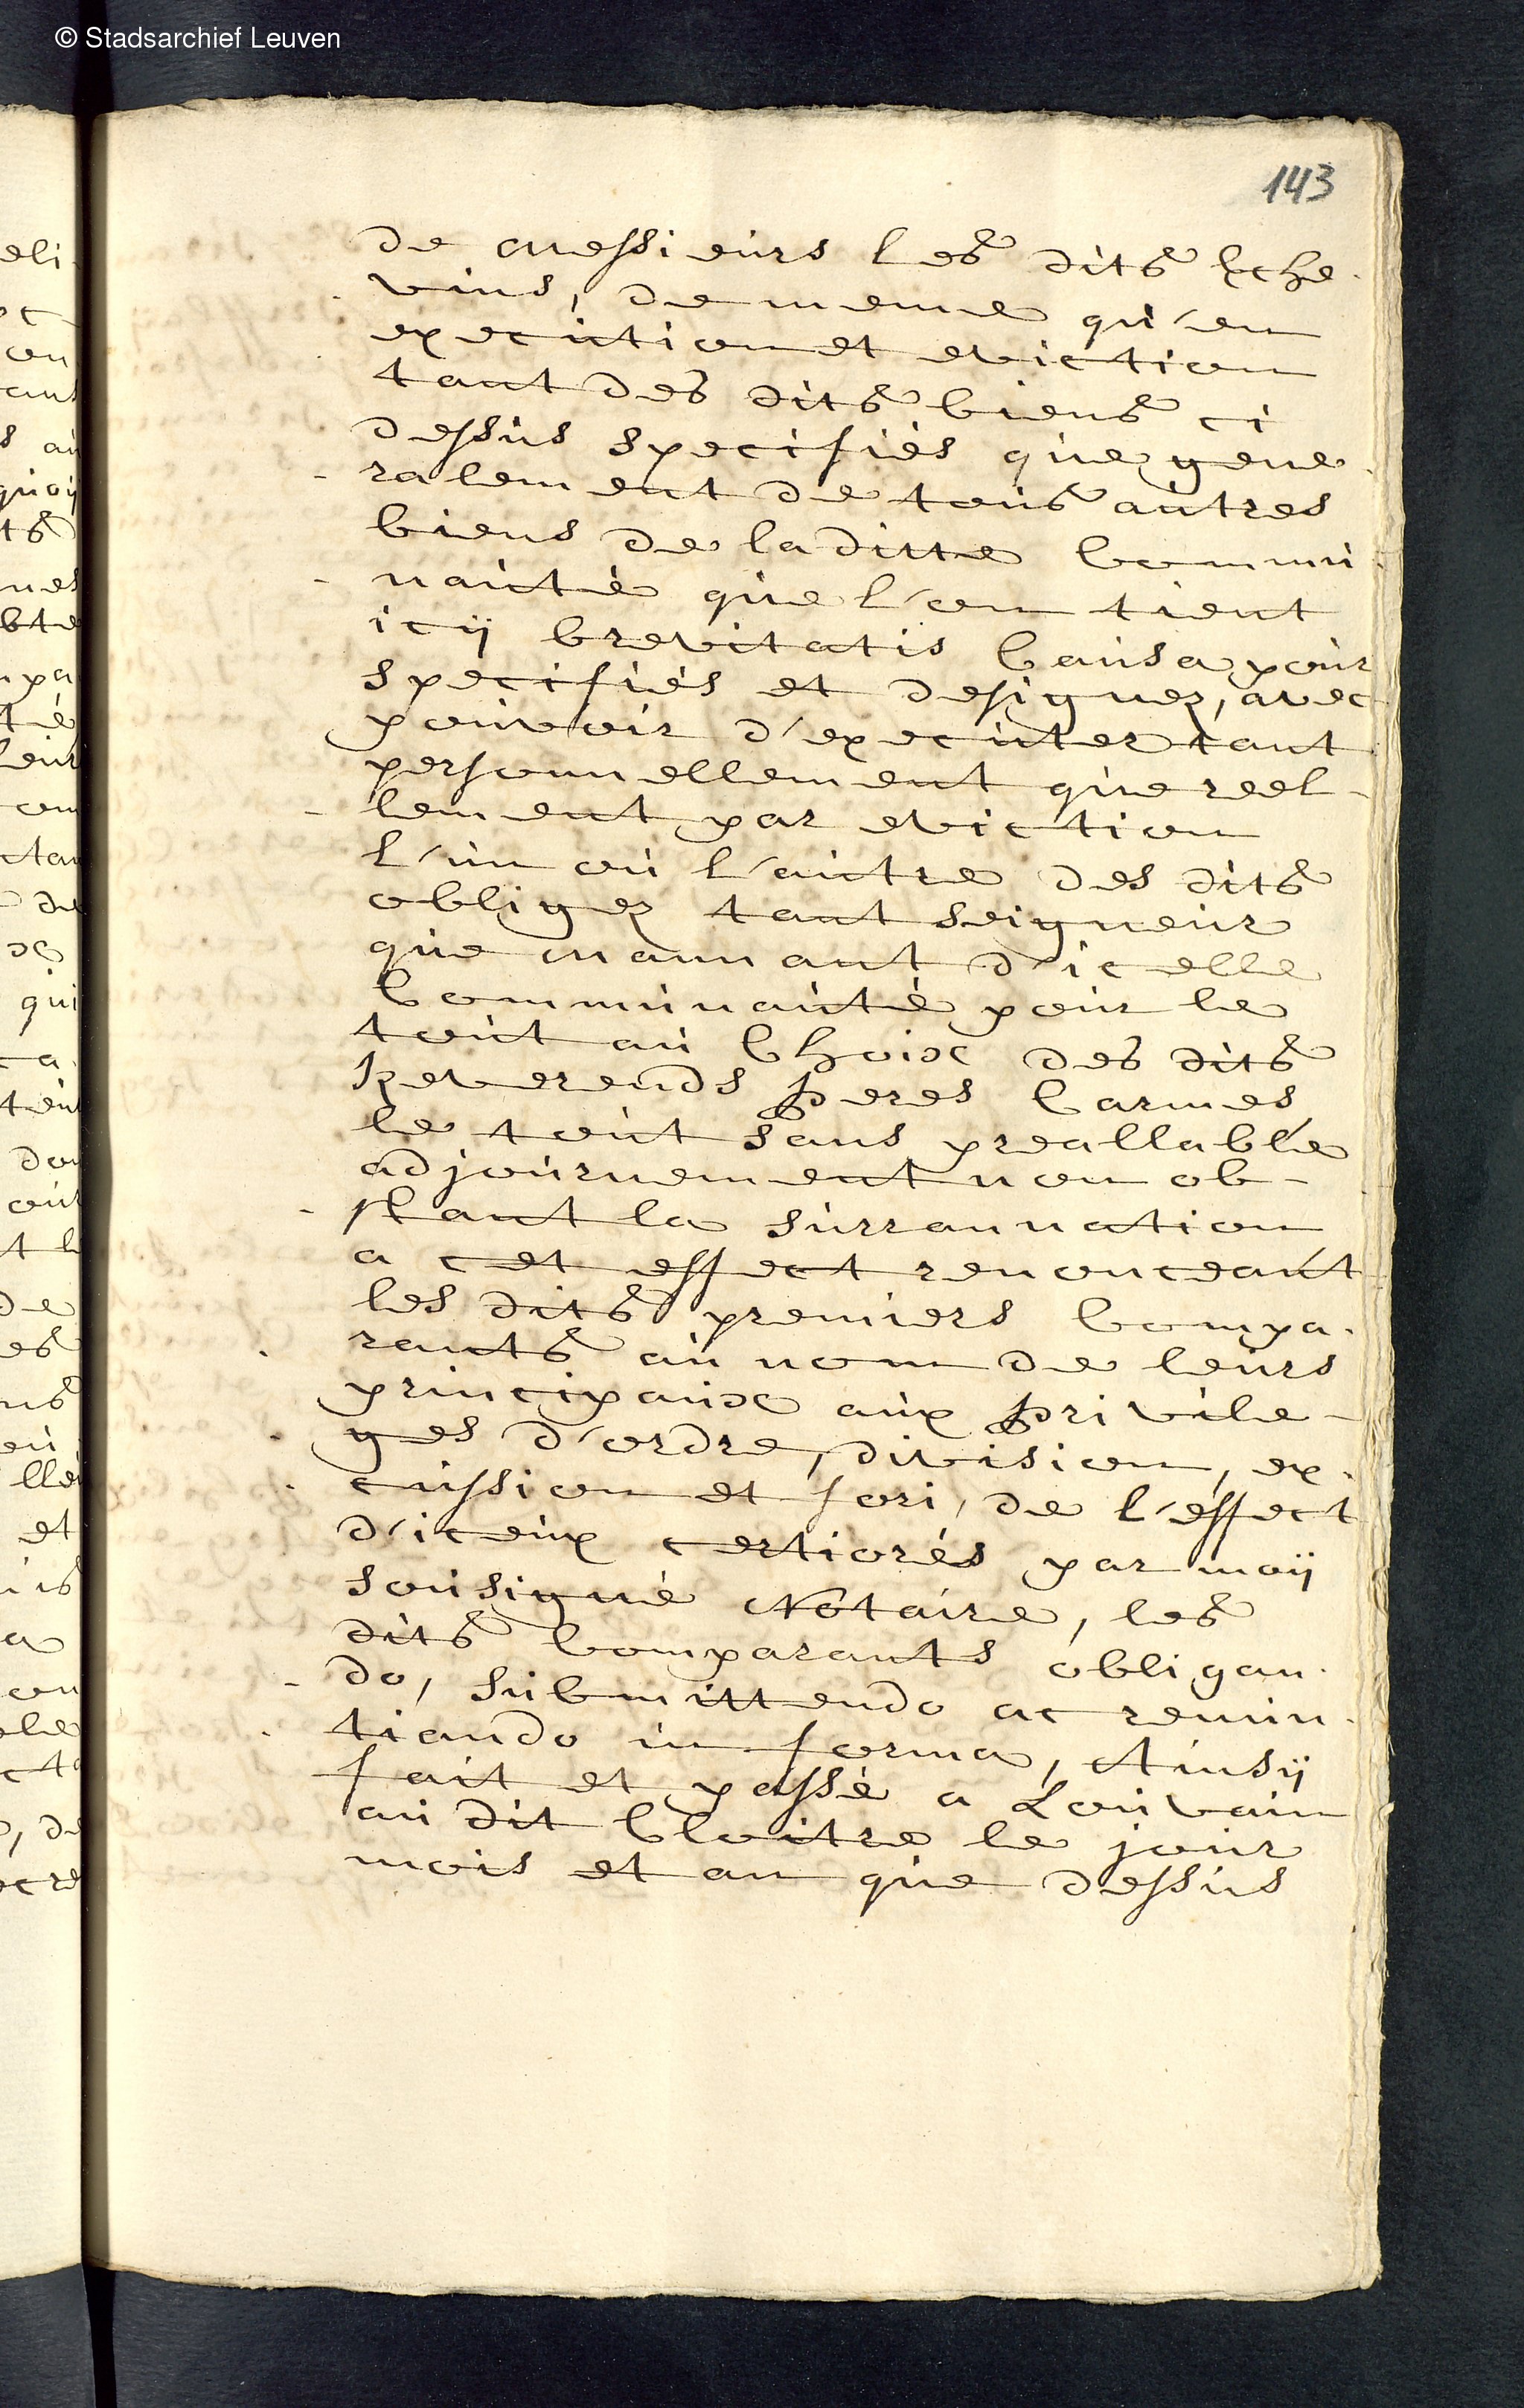 © Stadsarchief Leuven
143
de messieurs les dits Eche-
vins, de meme qu'en
execution et eviction
tant des dits biens ci
dessus specifiés que gene-
ralement de tous autres
biens de laditte Commu-
nauté que l'on tient
icÿ brevitatis Causa pour
specifiés et designez, avec
pouvoir d'executer tant
personnellement que reel-
lement par eviction
l'un ou l'autre des dits
obligez tant seigneur
que mannant d'icelle
Communauté pour le
tout au Choix des dits
Reverends Peres Carmes
le tout sans preallable
adjournement non ob-
stant la surrannation
a cet effect renonceant
les dits premiers Compa-
rants au nom de leurs
principaux aux Privile-
ges d'ordre, division, ex-
cussion et fori, de l'effect
d'iceux certiorés par moÿ
sousigné Notaire, les
dits Comparants obligan-
do, submittendo ac renun-
tiando in forma, Ainsÿ
fait et passé a Louvain
au dit Cloitre le jour
mois et an que dessus